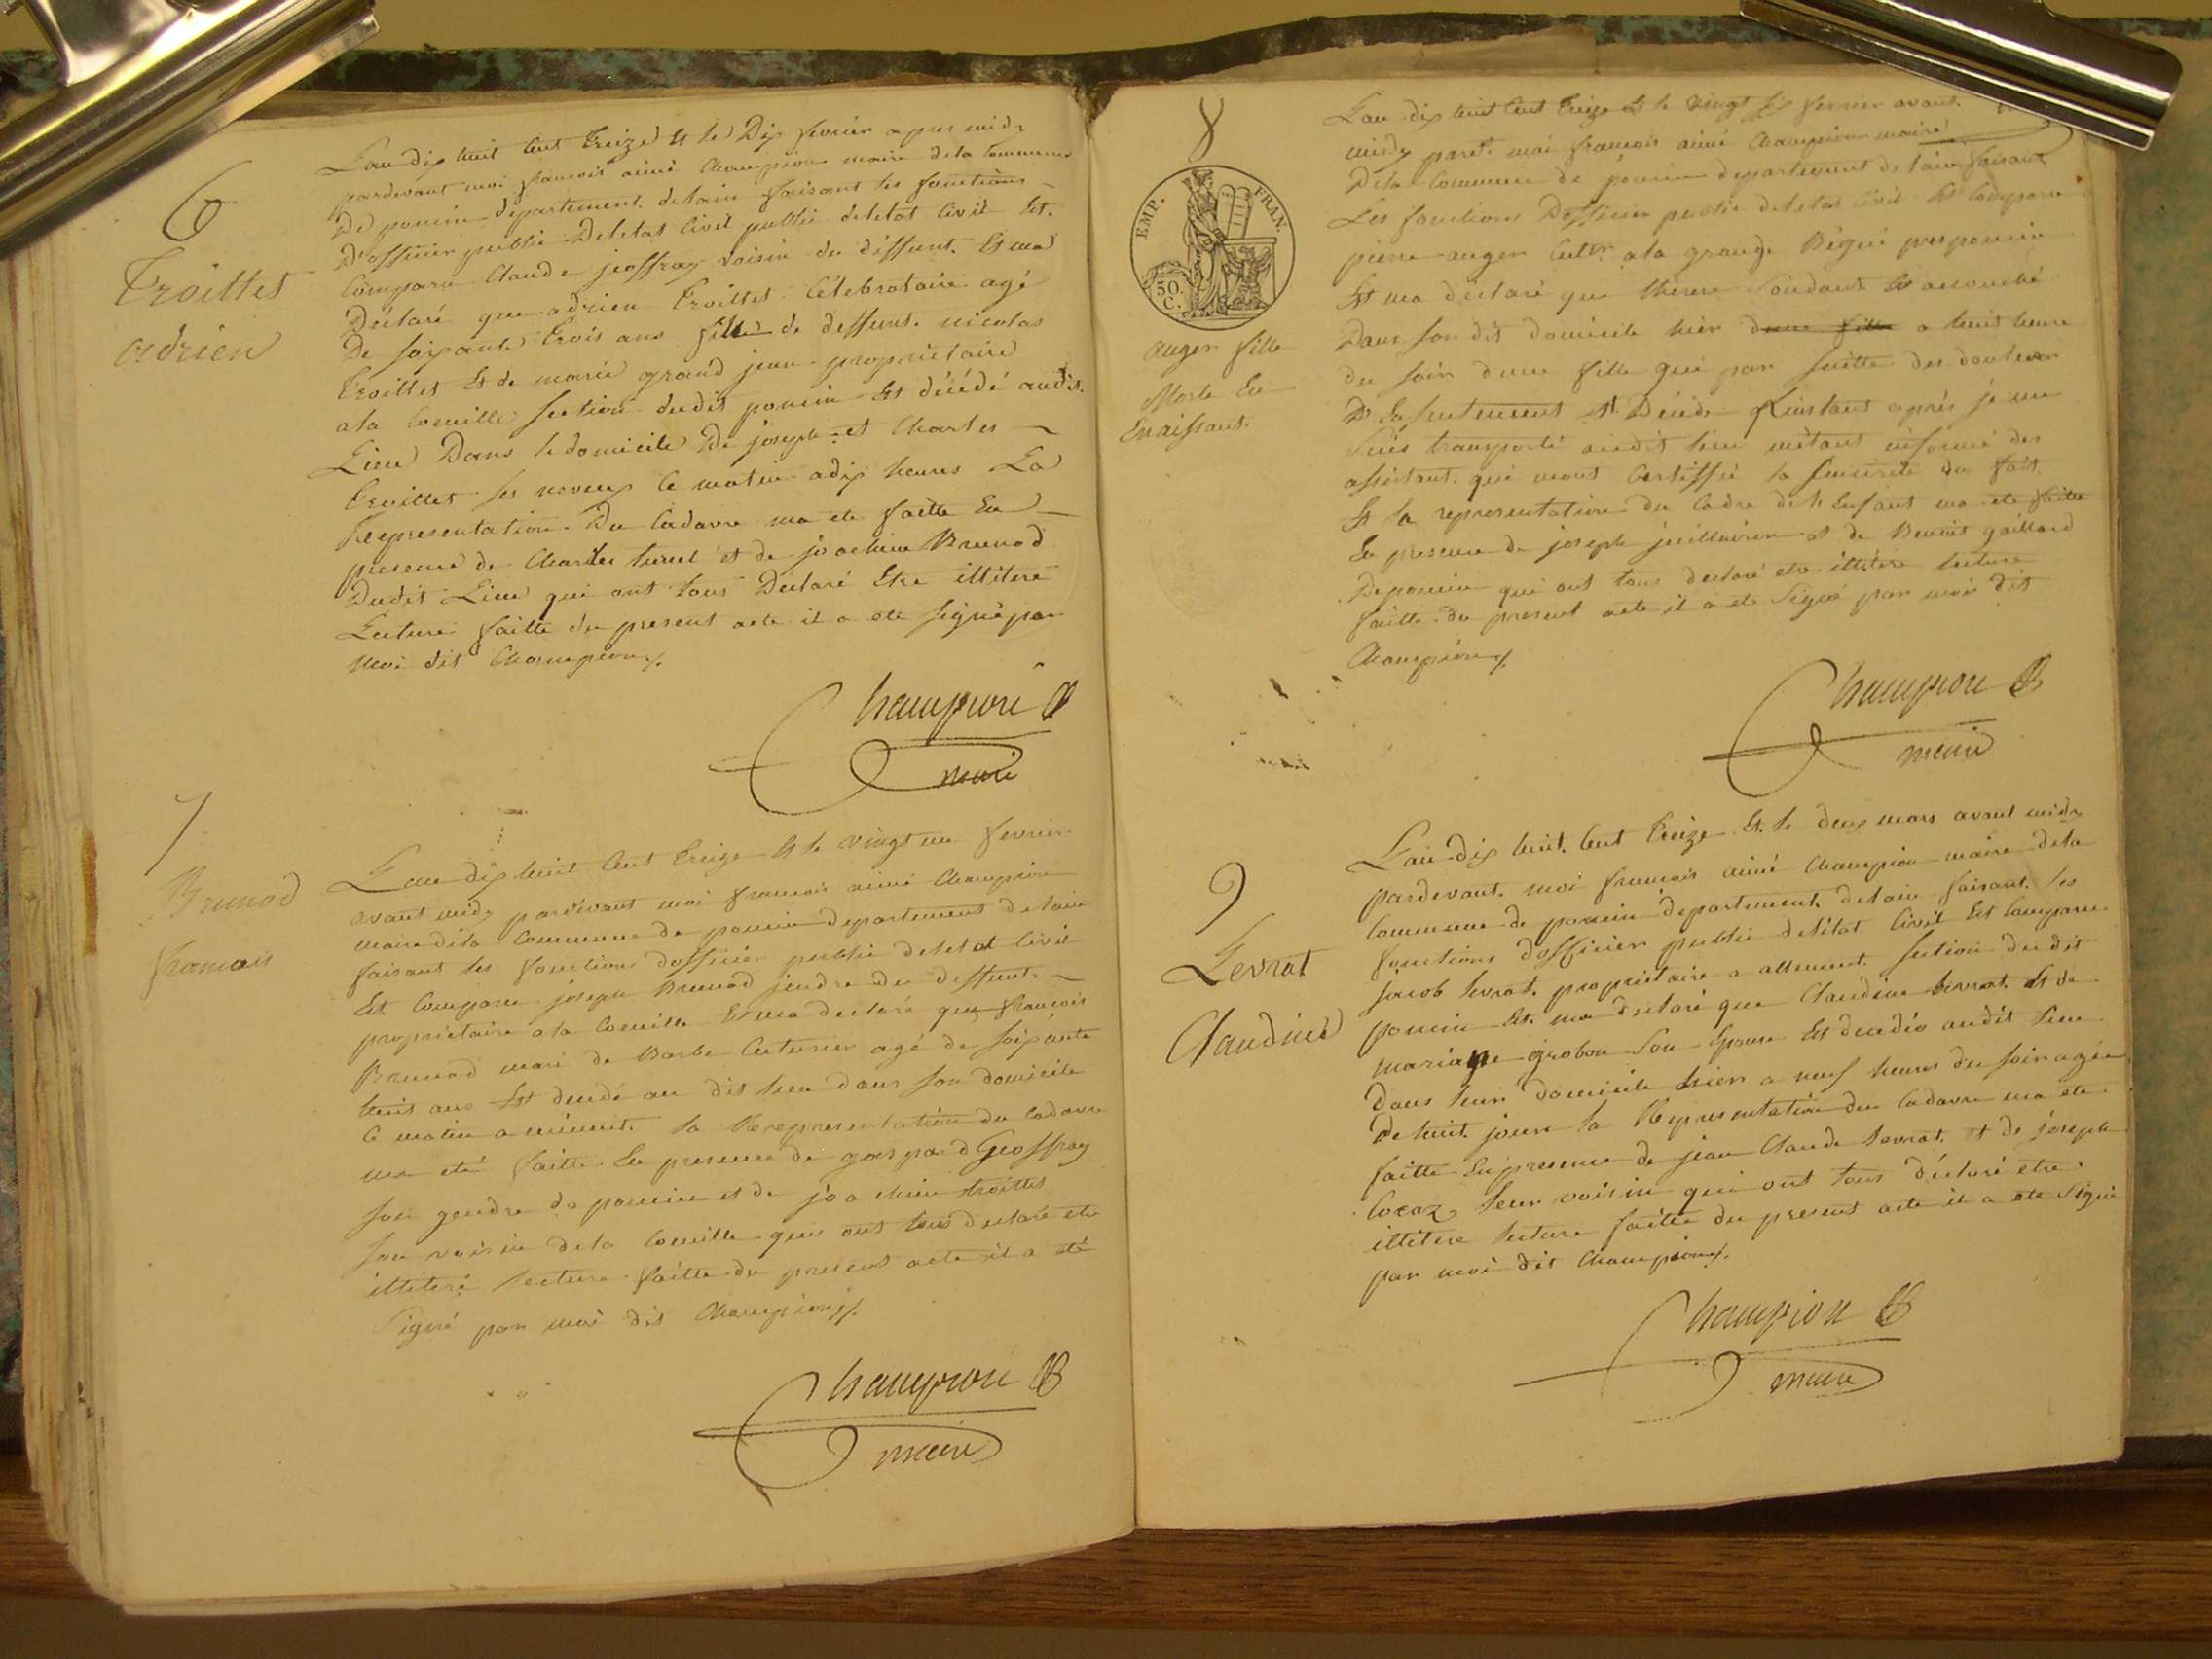 6
Troillet
adrien
Lan dix huit Cent Treize Et le Dix fevrier apres midy
pardevant moi francois aimé Champion maire dela Commune
De poncin departement delain faisant les fonctions
Dofficier public Deletat Civil public deletat Civil Est
Comparu Claude jeoffray voisin du deffunt. Et ma
Déclaré que adrien Troillet Célebrataire agé
De soixante Trois ans fille de deffunt. nicolas
Troillet Et de marie grand jean proprietaire
ala Coeuille section dudit poncin Est décédé audit.
Lieu Dans le domicile De joseph et Charles
Troillet ses neveux Ce matin a dix heures La
Representation Du Cadavre ma ete faitte En
presence de Charles et de joachim Brunod
Dudit Lieu qui ont tous Déclaré Etre illitere
Lecture faitte du present acte il a ete signé par
moi dit Champion
Champion
maire
7
Brunod
francois
Lan dix huit Cent Treize Et le vingt un fevrier
avant midy pardevant moi francois aimé Champion
maire dela Commune de poncin departement delain
faisant les fonctions dofficier public deletat Civil
Est Comparu joseph Brunod jendre du deffunt.
proprietaire ala Coeuille Et ma declaré que francois
Brunod mari de Barbe Cuturier agé de soixante
huit ans Est decedé au dit lieu dans son domicile
Ce matin a minuit. la Representation du Cadavre
ma eté faitte En presence de gaspard Geoffray
son gendre de poncin et de joachim troillet
son voisin dela Coeuille qui ont tous declaré etre
illiteré lecture faitte du present acte il a eté
Signé par moi dit Champion
Champion
maire
8
EMP. FRAN.
50.
C.
auger fille
Morte En
Enaissant.
Lan dix huit Cent Treize Et le vingt six fevrier avant.
midy pard.t moi francois aimé Champion maire
Dela Commune de poncin departement de lain faisant
Les fonctions Dofficier public deletat Civil Est Comparu
pierre auger Cult.r ala grange Bégué pres poncin
Et ma déclaré que therese Soudant Est accouché
Dans son dit domicile hier dune fille a huit heure
du soir dune fille qui par suitte des douleur
De Enfentement Est Décédé Linstant aprés je me
Suis transporté audit lieu métant informé des
assistant. qui mont Certiffié la sincerité du fait.
Et la representation du Cadre de l Enfant ma ete faitte
En presence de joseph juillairon et de Benoit gaillard
De poncin qui ont tous declaré etre illitére lecture
faitte du present acte il a ete Signé par moi dit
Champion
Champion
maire
9
Levrat
Claudine
Lan dix huit. Cent Treize Et. le deux mars avant midy
pardevant. moi francois aimé Champion maire dela
Commune de poncin departement. delain faisant. les
fonctions dofficier public deletat Civil Est Comparu
jacob levrat. proprietaire a allement. section dudit
poncin Et. ma declaré que Claudine levrat. Et de
mariane grobon Son Epouse Est decedée audit lieu
Dans leur domicile hier a neuf heures du soir agée
De huit. jours la Representation du Cadavre ma ete
faitte En presence de jean Claude levrat. et de joseph
Cocaz leur voisin qui ont tous déclaré etre
illitere lecture faitte du present acte il a ete Signé
par moi dit Champion
Champion
maire